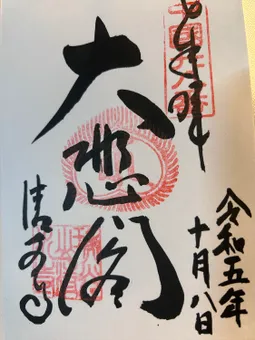 奉拝
大悲閣
清水寺
令和五年
十月八日